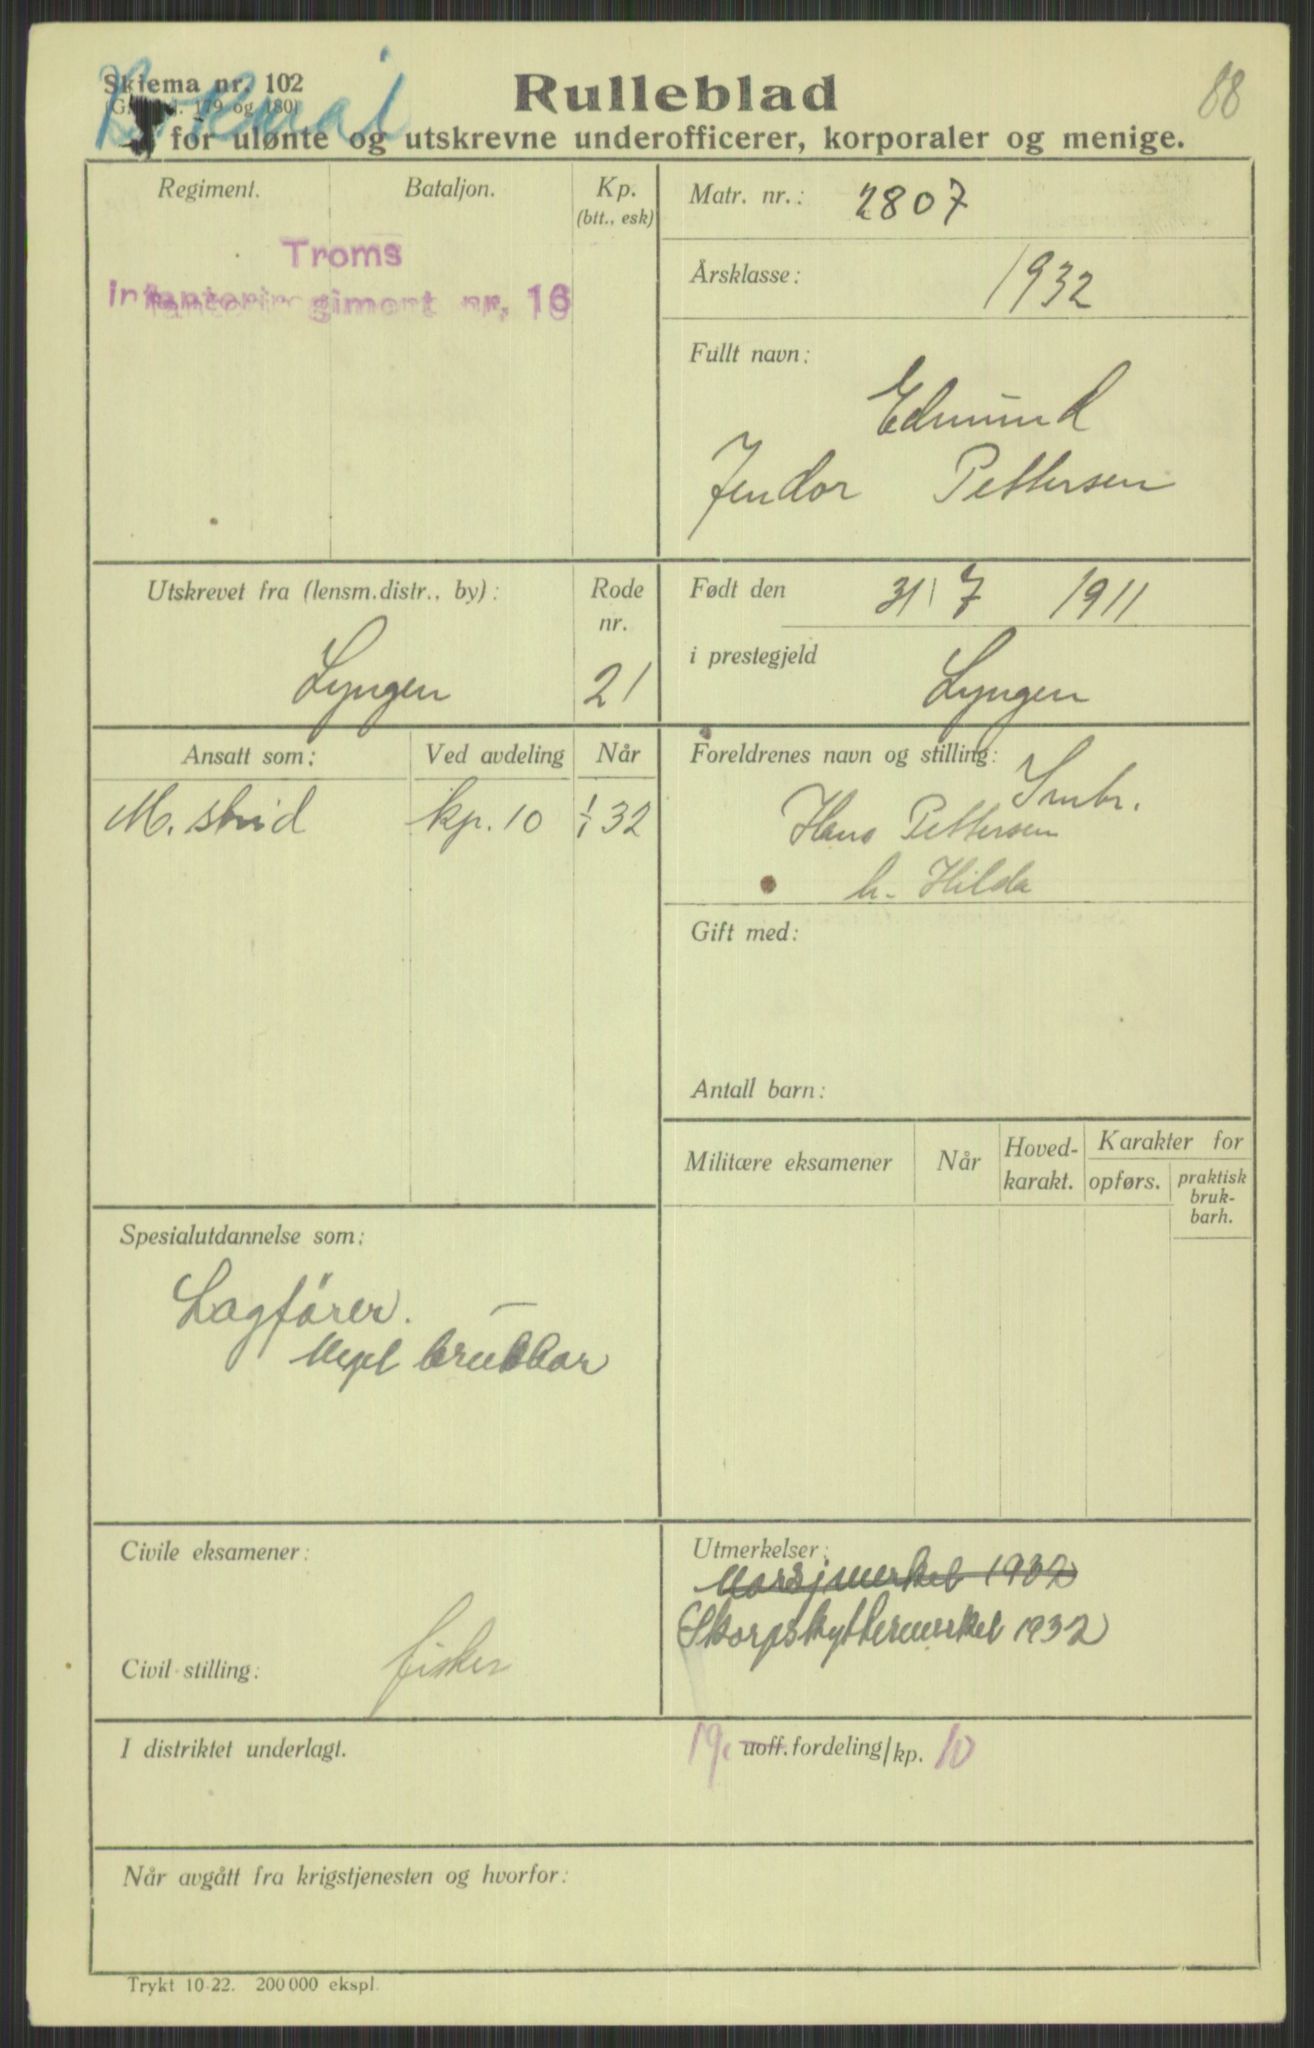 Skjema nr. 102
179 og 180)
Rulleblad
88
for ulønte og utskrevne underofficerer, korporaler og menige.
Regiment.
Bataljon.
Kp.
(btt., esk)
Troms
Infanteriregiment nr. 16
Matr. nr.: 2807
Årsklasse: 1932
Fullt navn:
Edmund
Jendor Pettersen
Utskrevet fra (lensm.distr., by):
Lyngen
Rode
nr.
21
Født den 31 7 1911
i prestegjeld Lyngen
Ansatt som:
Ved avdeling
Når
M. strid kp. 10 1/1 32
Foreldrenes navn og stilling:
Smbr.
Hans Pettersen
h. Hilda
Gift med:
Antall barn:
Militære eksamener
Når
Hoved-
karakt.
Karakter for
opførs.
praktisk
bruk-
barh.
Spesialutdannelse som:
Lagfører. —
Meget brukbar
Civile eksamener:
Civil stilling: fisker
Utmerkelser:
Marsjmerket 1932
Skarpskyttermerket 1932
I distriktet underlagt.
19. uoff. fordeling/kp. 10
Når avgått fra krigstjenesten og hvorfor:
Trykt 10-22. 200 000 ekspl.